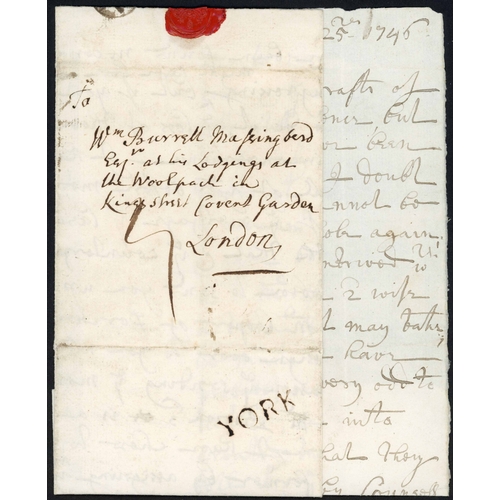 To
Wm Burrell Massingberd
Esqr at his Lodgings at
the Woolpack in
Kingstreet Covent Garden
London
YORK
25 1746
rafts of
but
or been
I doubt
annot be
again
2 wise
l may
have
very
into
hat they
Counsell